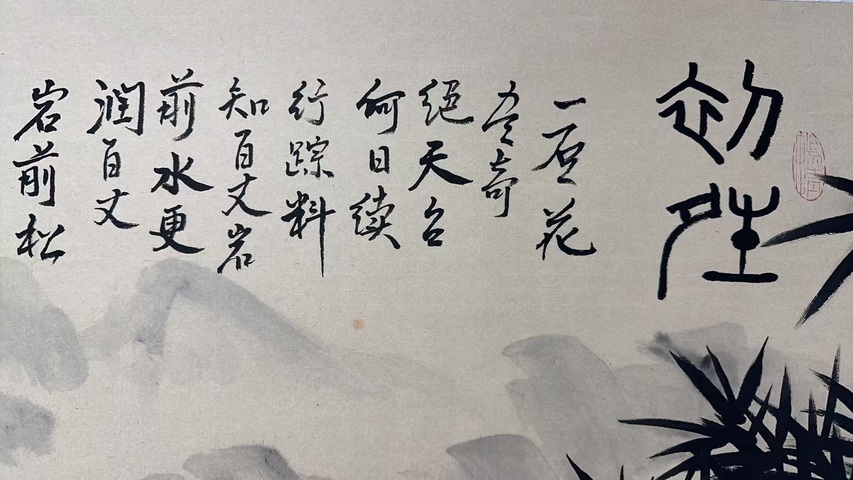 初
一 花
奇
絕天台
何日续
行踪料
知百丈岩
前水更
润百丈
岩前松